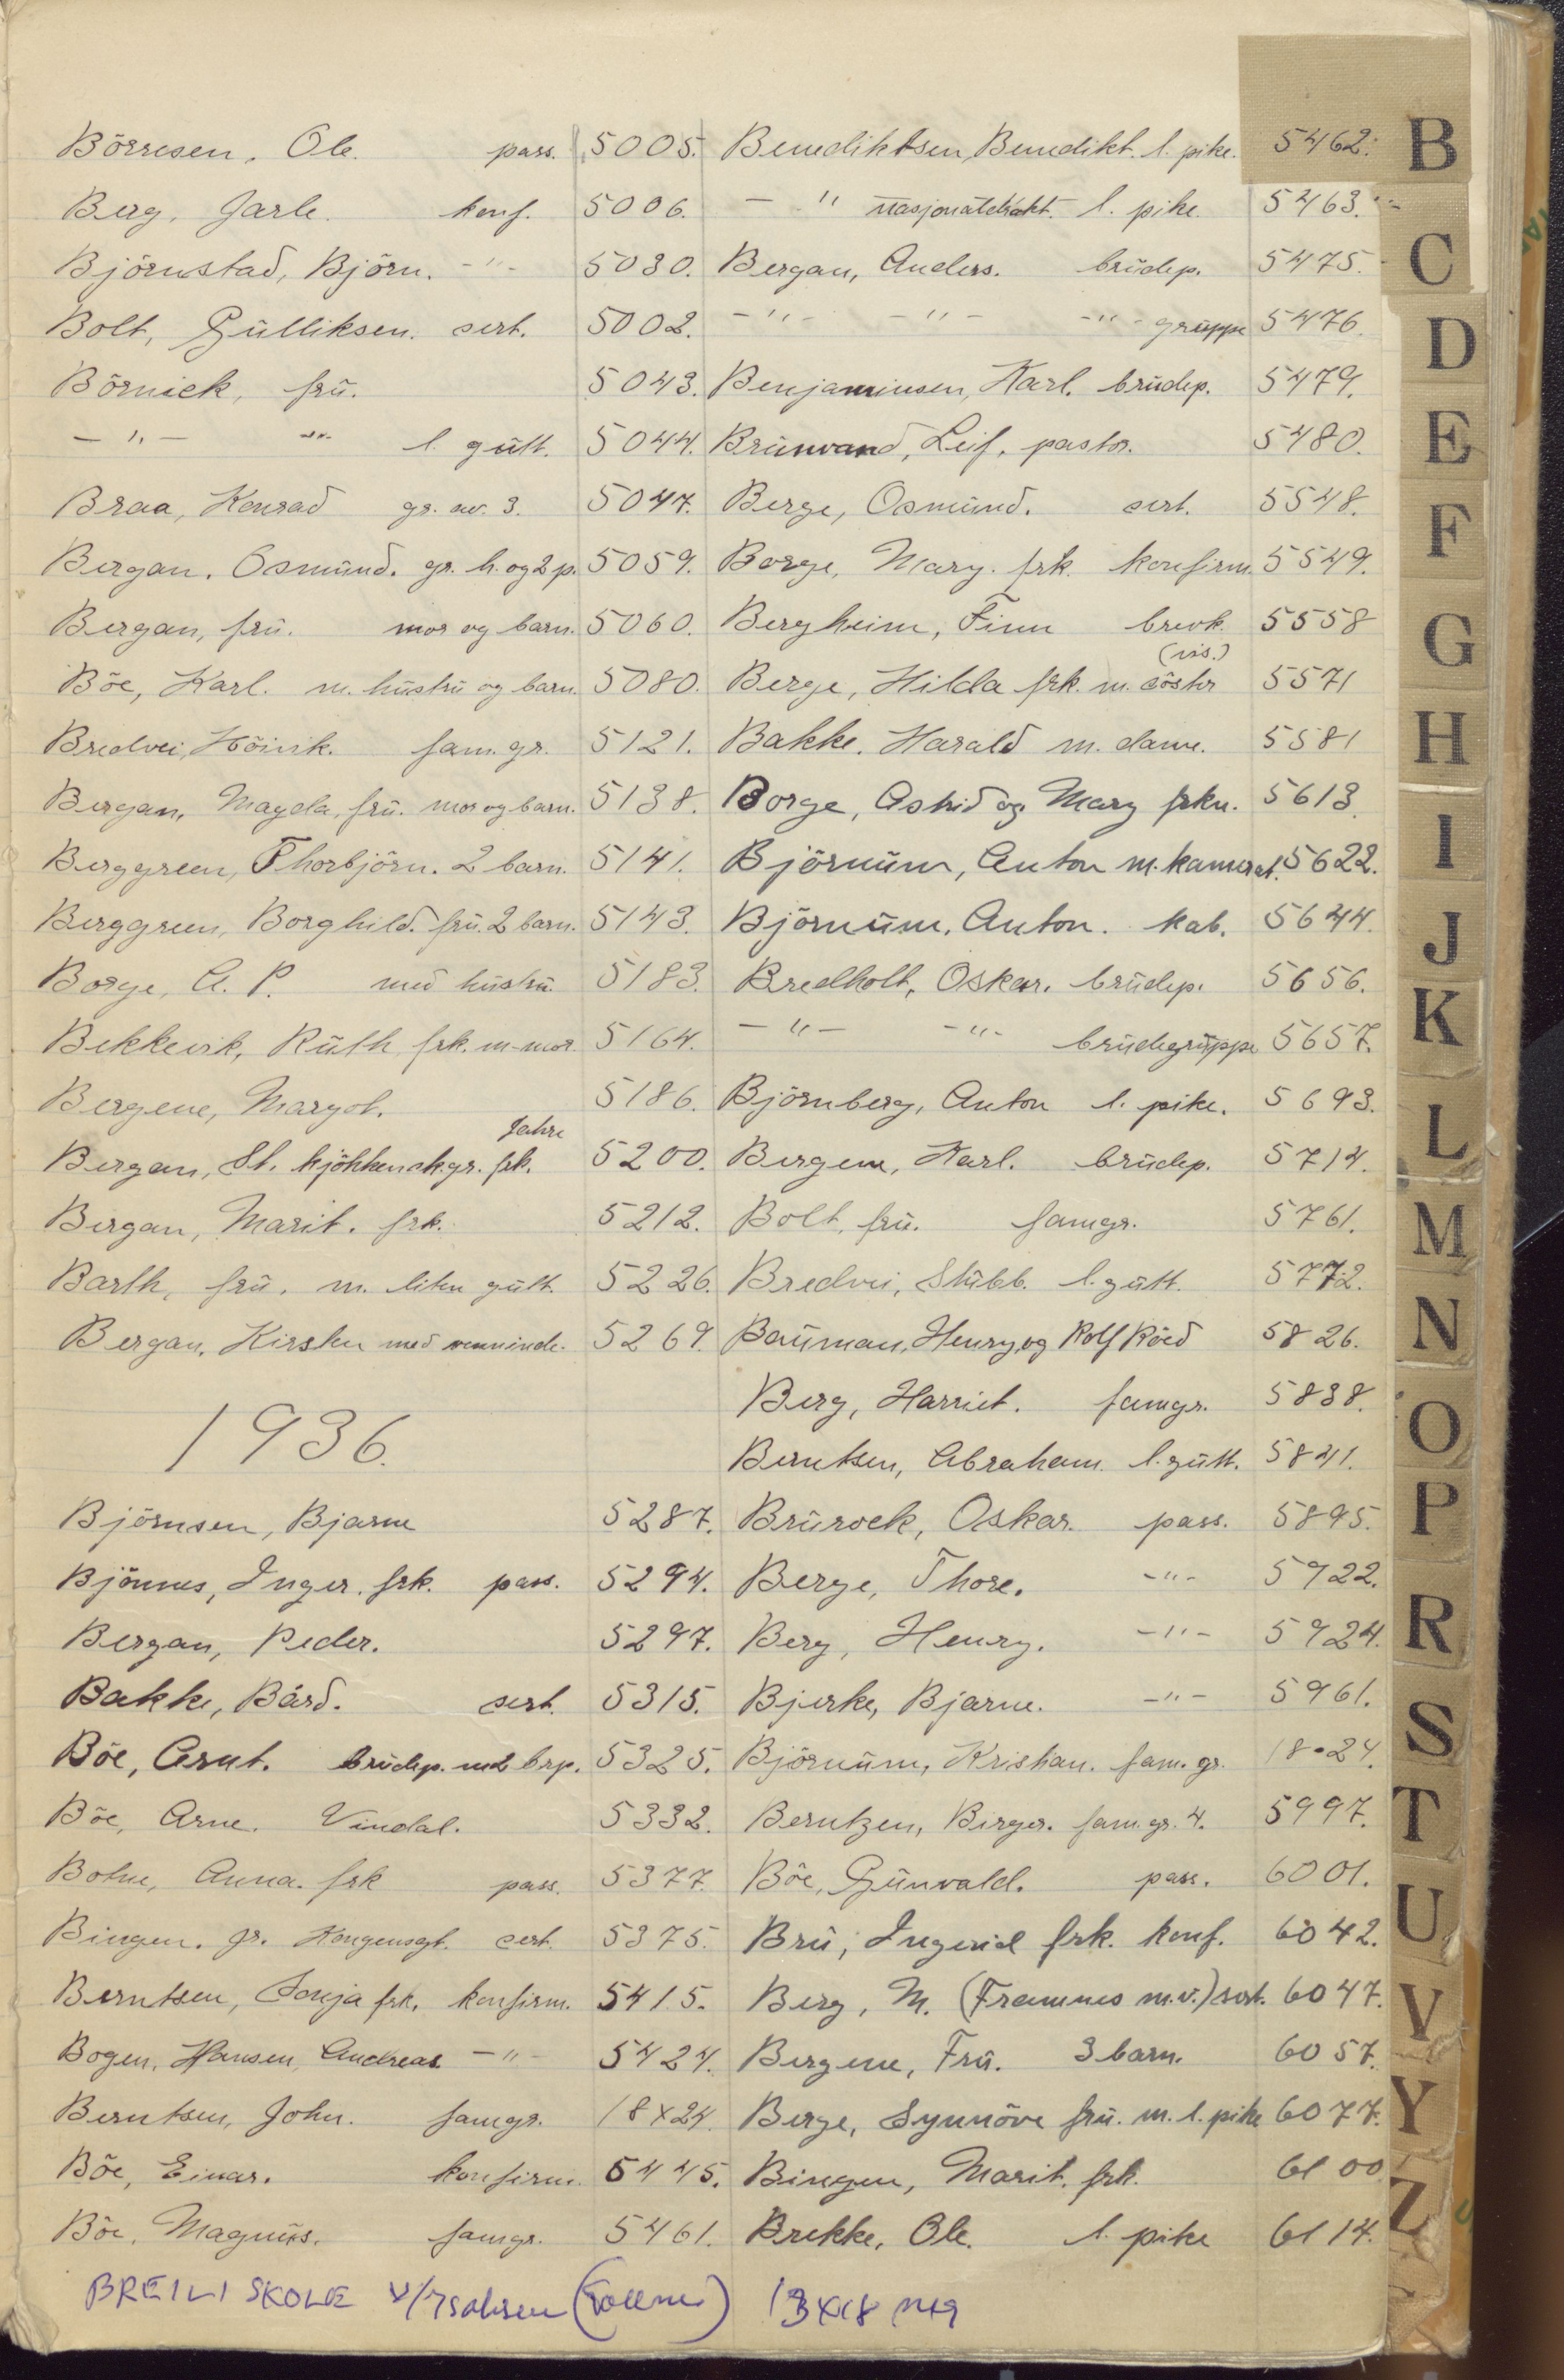 Börresen, Ole. pass. 5005.
Berg, Jarle. konf. 5006.
Björnstad, Björn. -"- 5030.
Bolt, Gulliksen. sert. 5002.
Börnick, frü. 5043.
-"- -"- l. gütt. 5044.
Braa, Konrad gr. av. 3. 5047.
Bergan, Osmünd. gr. h. og 2 p. 5059.
Bergan, frü. mor og barn. 5060.
Böe, Karl. m. hüstrü og barn. 5080.
Bredvei, Höivik. fam. gr. 5121.
Bergan, Magda, frü. mor og barn. 5138.
Berggreen, Thorbjörn. 2 barn. 5141.
Berggreen, Borghild. frü. 2 barn. 5143.
Borge, A. P. med hüstrü. 5183.
Bekkevik, Rüth frk. m. mor. 5164.
Bergene, Margot. 5186.
Jahre
Bergan, St. kjökkenskgr. frk. 5200.
Bergan, Marit. frk. 5212.
Barth, frü. m. liten gütt. 5226.
Bergan, Kirsten med venninde. 5269.
1936.
Björnsen, Bjarne 5287.
Björnnes, Inger. frk. pass. 5294.
Bergan, Peder. 5297.
Bakke, Bård. sert. 5315.
Böe, Arnt. brüdep. med brp. 5325.
Böe, Arne. Vindal. 5332.
Botne, Anna. frk pass. 5377.
Bingen. gr. Kongensgt. sert. 5375.
Berntsen, Sonja frk. konfirm. 5415.
Bogen, Hansen, Andreas -"- 5424.
Berntsen, John. famgr. 18x24.
Böe, Einar. konfirm. 5445.
Böe, Magnüs. famgr. 5461.
Benediktsen, Benedikt. l. pike. 5462.
-" nasjonaldrakt. l. pike. 5463.
Bergan, Anders. brüdep. 5475.
-"- -"- -"- grüppe 5476.
Benjaminsen, Karl. brüdep. 5479.
Brünvand, Leif, pastor. 5480.
Berge, Osmünd. sert. 5548.
Borge, Mary. frk. konfirm. 5549.
Bergheim, Finn brevk. 5558
(vis.)
Berge, Hilda frk. m. söster 5571
Bakke, Harald m. dame. 5581
Borge, Astrid og Mary frkn. 5613.
Björnüm, Anton m. kamerat. 5622.
Björnüm, Anton. kab. 5644.
Bredholt, Oskar. brüdep. 5656.
-"- -"- brüdegrüppe 5657.
Björnberg, Anton l. pike. 5693.
Bergene, Karl. brüdep. 5714.
Bolt, frü. famgr. 5761.
Bredvei, Stübb. l. gütt. 5772.
Baüman, Henry, og Rolf Röed 5826.
Berg, Harriet. famgr. 5838.
Berntsen, Abraham. l. gütt. 5841.
Brürock, Oskar. pass. 5895.
Berge, Thore. -"- 5922.
Berg, Henry. -"- 5924.
Bjerke, Bjarne. -"- 5961.
Björnüm, Kristian. fam. gr. 18•24.
Berntzen, Birger. fam. gr. 4. 5997.
Böe, Günvald. pass. 6001.
Brü, Ingerid frk. konf. 6042.
Berg, M. (Framnes m.v.) sert. 6047.
Bergene, Frü. 3 barn. 6057.
Berge, Synnöve frü. m. l. pike 6077.
Bingen, Marit. frk. 6100
Brekke, Ole. l. pike 6114.
BREILI SKOLE v/Isaksen 13x18
B
C
D
E
F
G
H
I
J
K
L
M
N
O
P
R
S
T
U
V
Y
Z